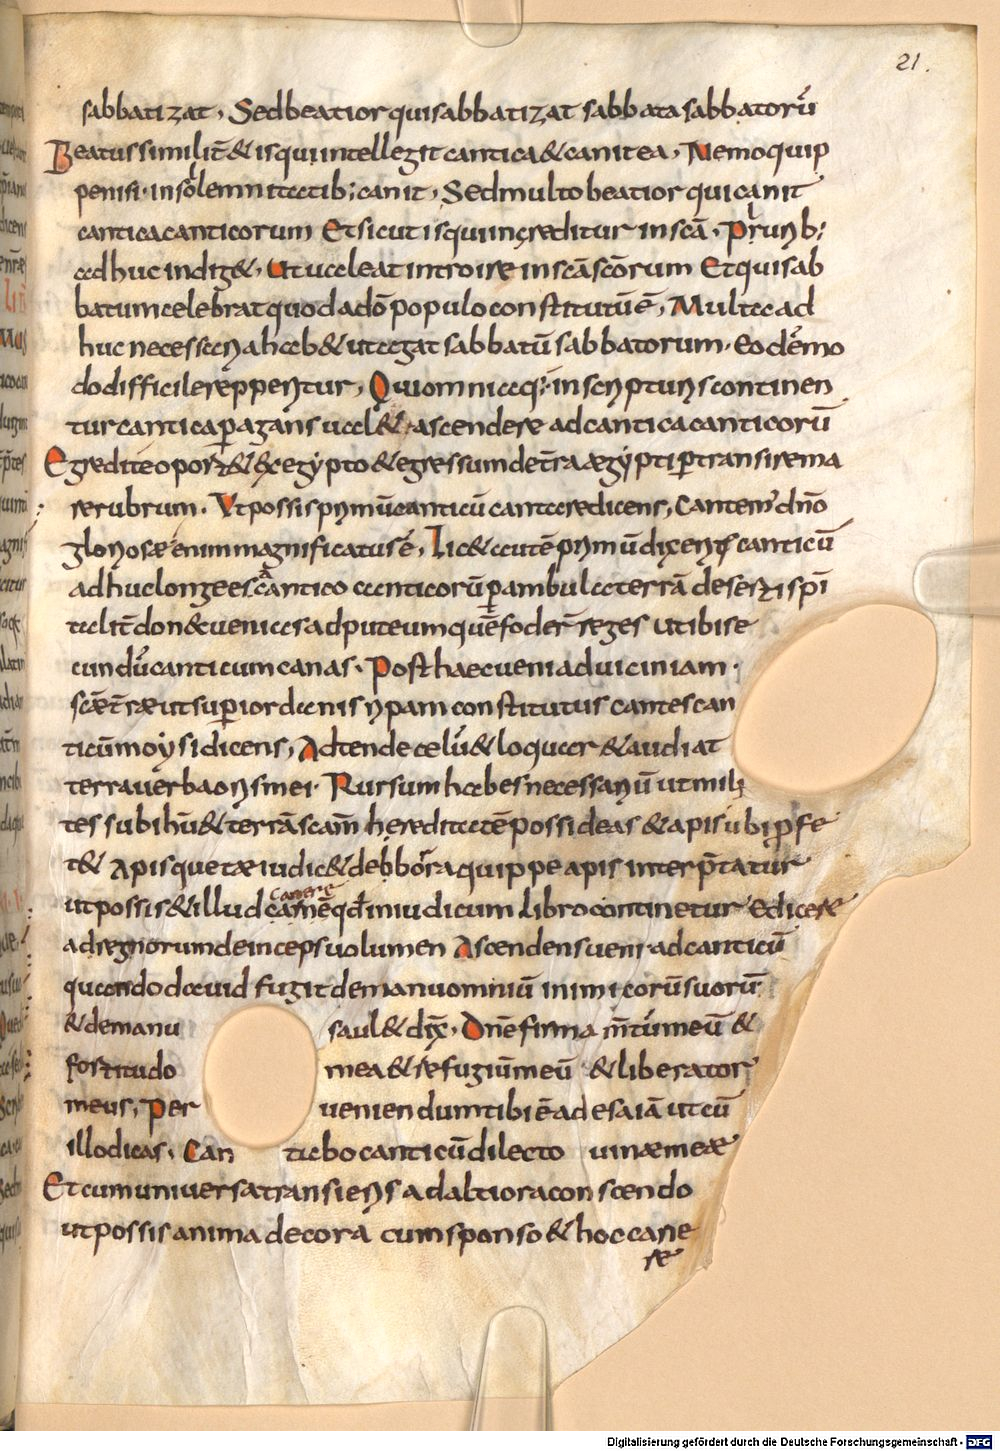 21.
sabbatizat, Sed beatior qui sabbatizat sabbata sabbatorū
Beatus similit̄ & is qui intellegit cantica & canit ea, Nemo quip
pe nisi in solemnitatib; canit, Sed multo beatior qui canit
cantica canticorum Et sicut is qui ingreditur in scā, plurib;
adhuc indig&, Ut valeat introire in scā scōrum Et qui sab
batum celebrat quod a dō populo constitutū ē, Multa ad
huc necessaria hab& ut agat sabbatū sabbatorum, Eodē mo
do difficile reperitur, Qui omnia q; in scripturis continen
tur cantica p agrans val& ascendere ad cantica canticorū
Egredi te oport& ex egypto & egressum de t̄ra ægypti p transire ma
re rubrum, Ut possis primū canticū cantare dicens, Cantem' dn̄o
gloriosæ enim magnificatus ē, Lic& autē primū dixeris canticū
adhuc longe es a cantico canticorū p ambula terrā deserti spi
talit̄ donec venias ad puteum quē foder̄ reges ut ibi se
cundū canticum canas, Post haec veni ad viciniam
scæ t̄ræ ut sup iordanis ripam constitutus cantes can
ticū moysi dicens, Adtende celū & loquar & audiat
terra verba oris mei, Rursum habes necessariū ut mili
tes sub ihū & terrā scam hereditatē possideas & apis tibi p fe
t& Apisque tæ iudic& debbora quippe apis interp̄tatur
ut possis & illud carmē canere qd̄ in iudicum libro continetur Edicere
ad regnorum deinceps volumen Ascendens veni ad canticū
quando david fugit de manu omniū inimicorū suorū
& de manu saul & dix̄, Dn̄e firmam̄tū meū &
fortitudo mea & refugiū meū & liberator
meus, Per veniendum tibi ē ad esaiā ut cū
illo dicas, Cantabo canticū dilecto vinæ meæ
Et cum universa transieris ad altiora conscendo
ut possis anima decora cum sponso & hoc cane
re
Digitalisierung gefördert durch die Deutsche Forschungsgemeinschaft - DFG